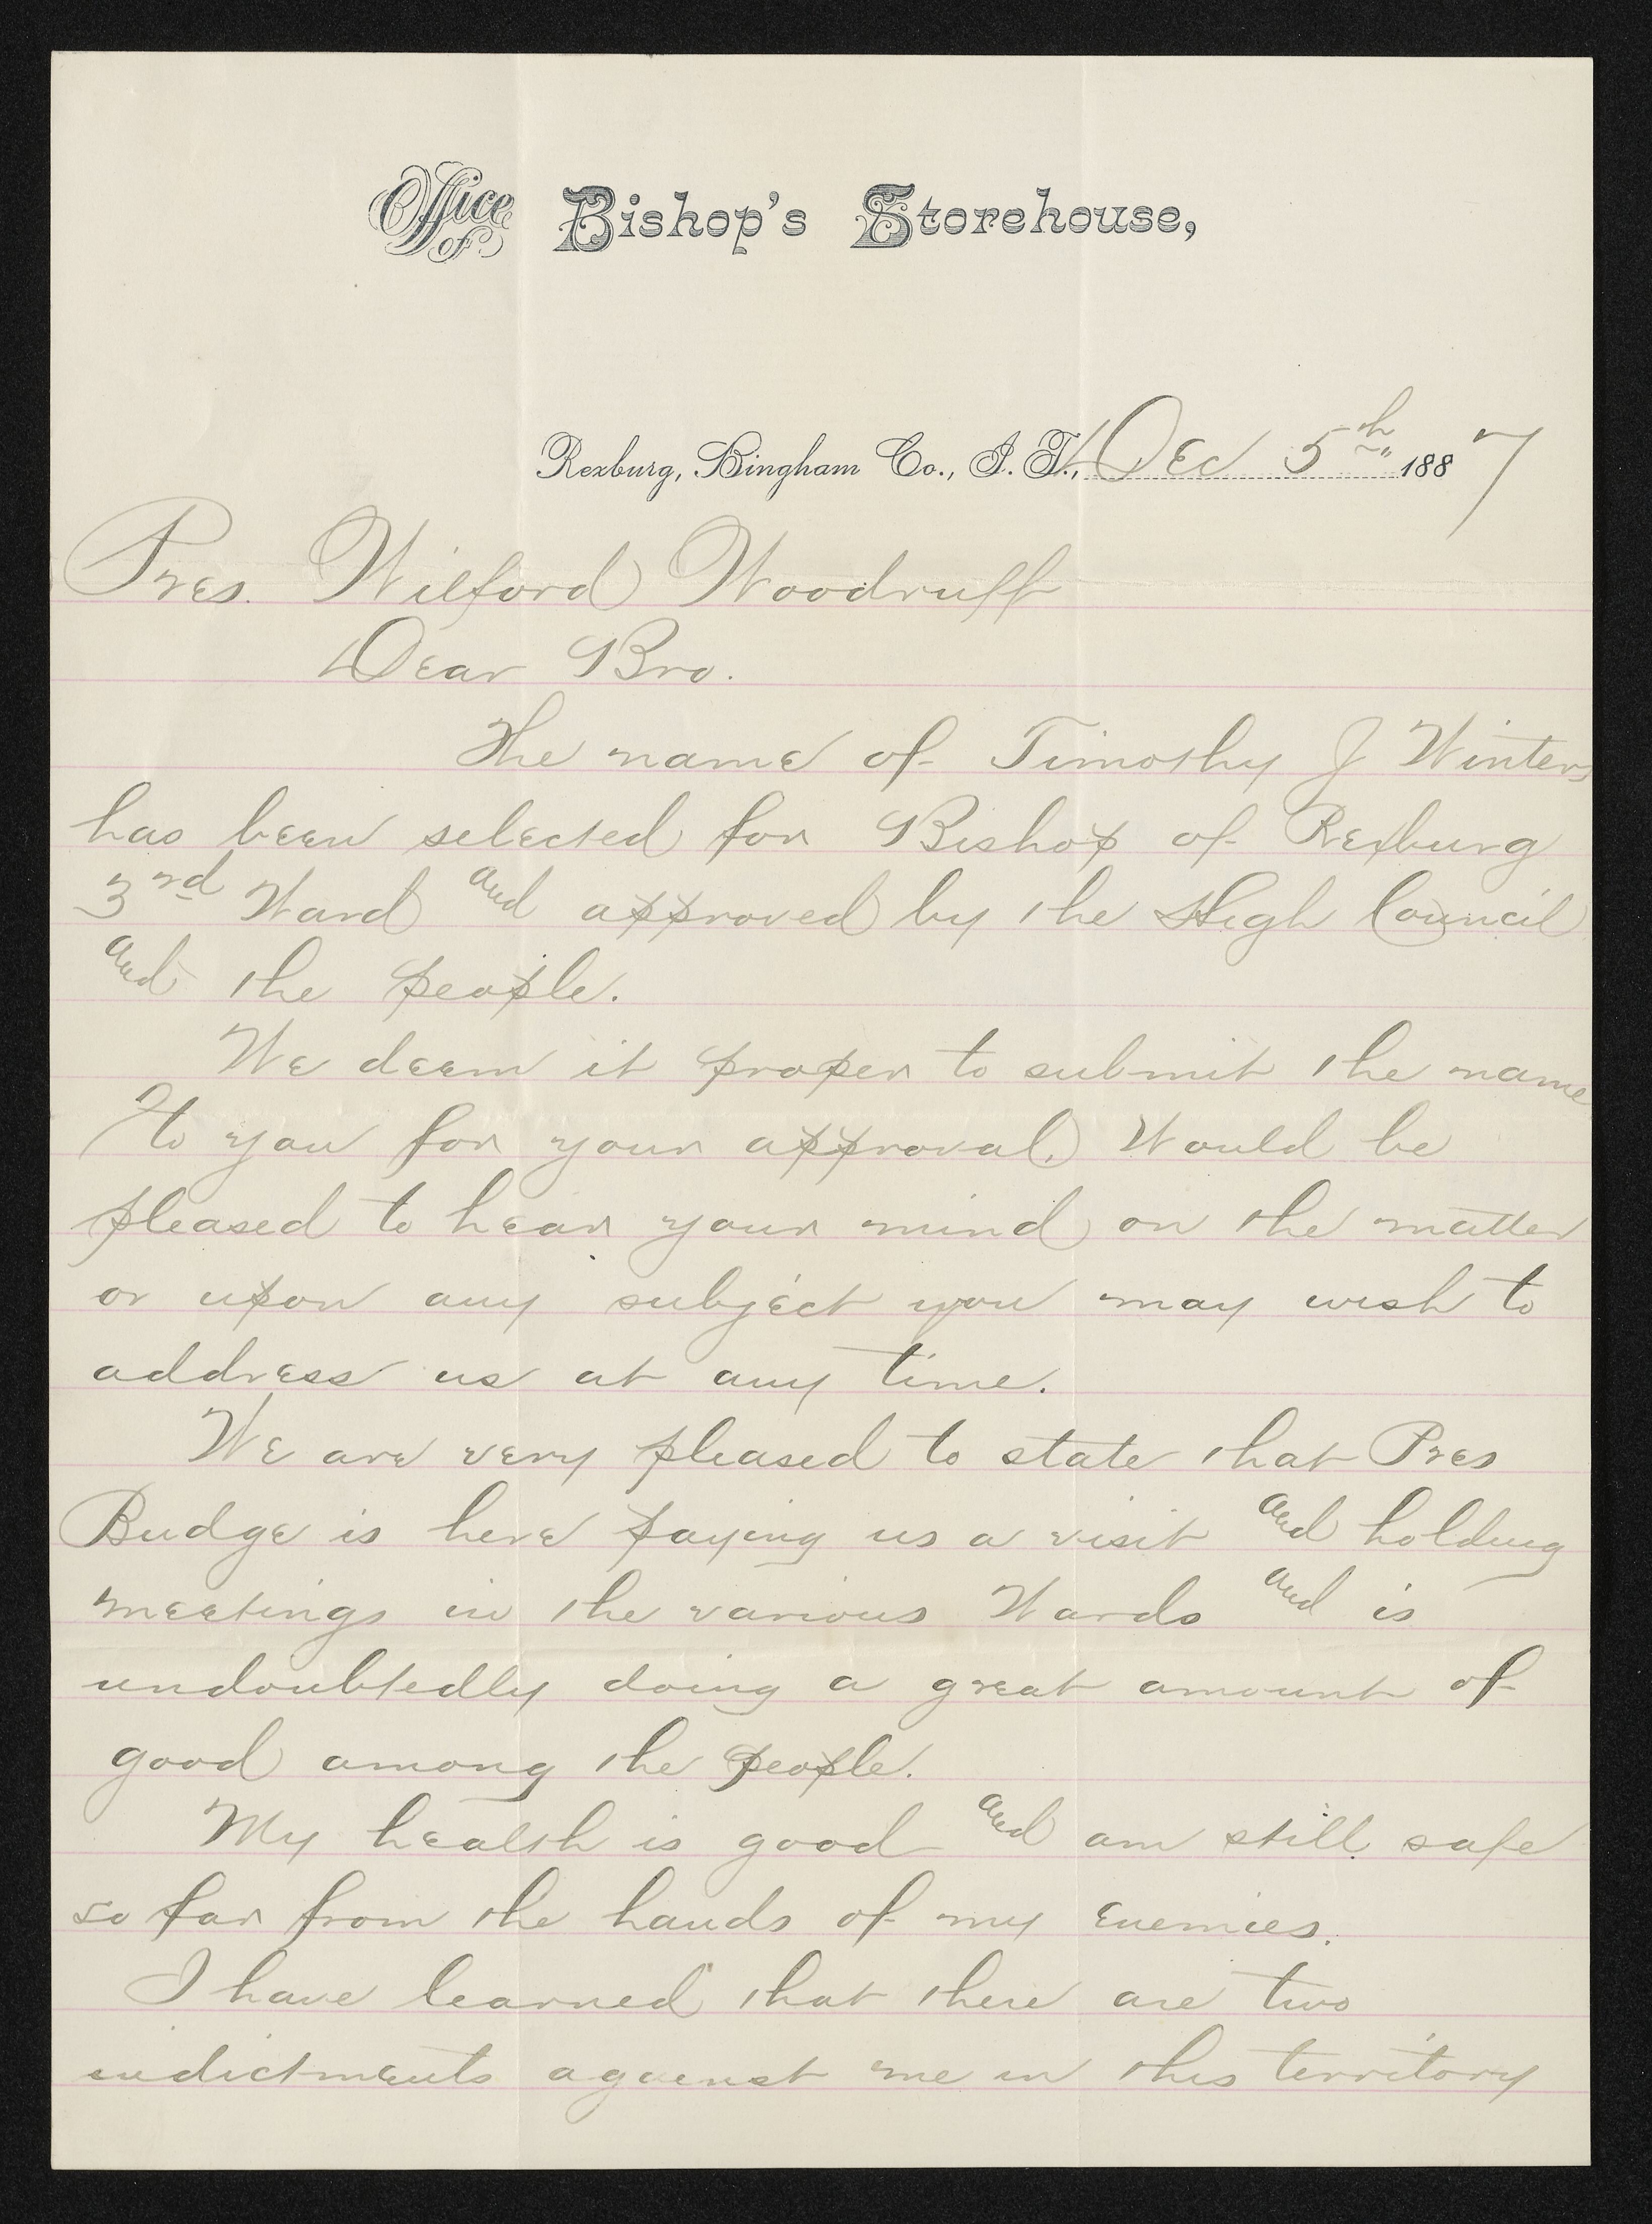 Office of Bishop's Storehouse,
Rexburg, Bingham Co., I. T., Dec 5th 1887
Pres. Wilford Woodruff
Dear Bro.
The name of Timothy J Winters
has been selected for Bishop of Rexburg
3rd Ward and approved by the High Council
and the people.
We deem it proper to submit the name
to you for your approval. Would be
pleased to hear your mind on the matter
or upon any subject you may wish to
address us at any time.
We are very pleased to state that Pres
Budge is here paying us a visit and holding
meetings in the various Wards and is
undoubtedly doing a great amount of
good among the people.
My health is good and am still safe
so far from the hands of my enemies.
I have learned that there are two
indictments against me in this territory